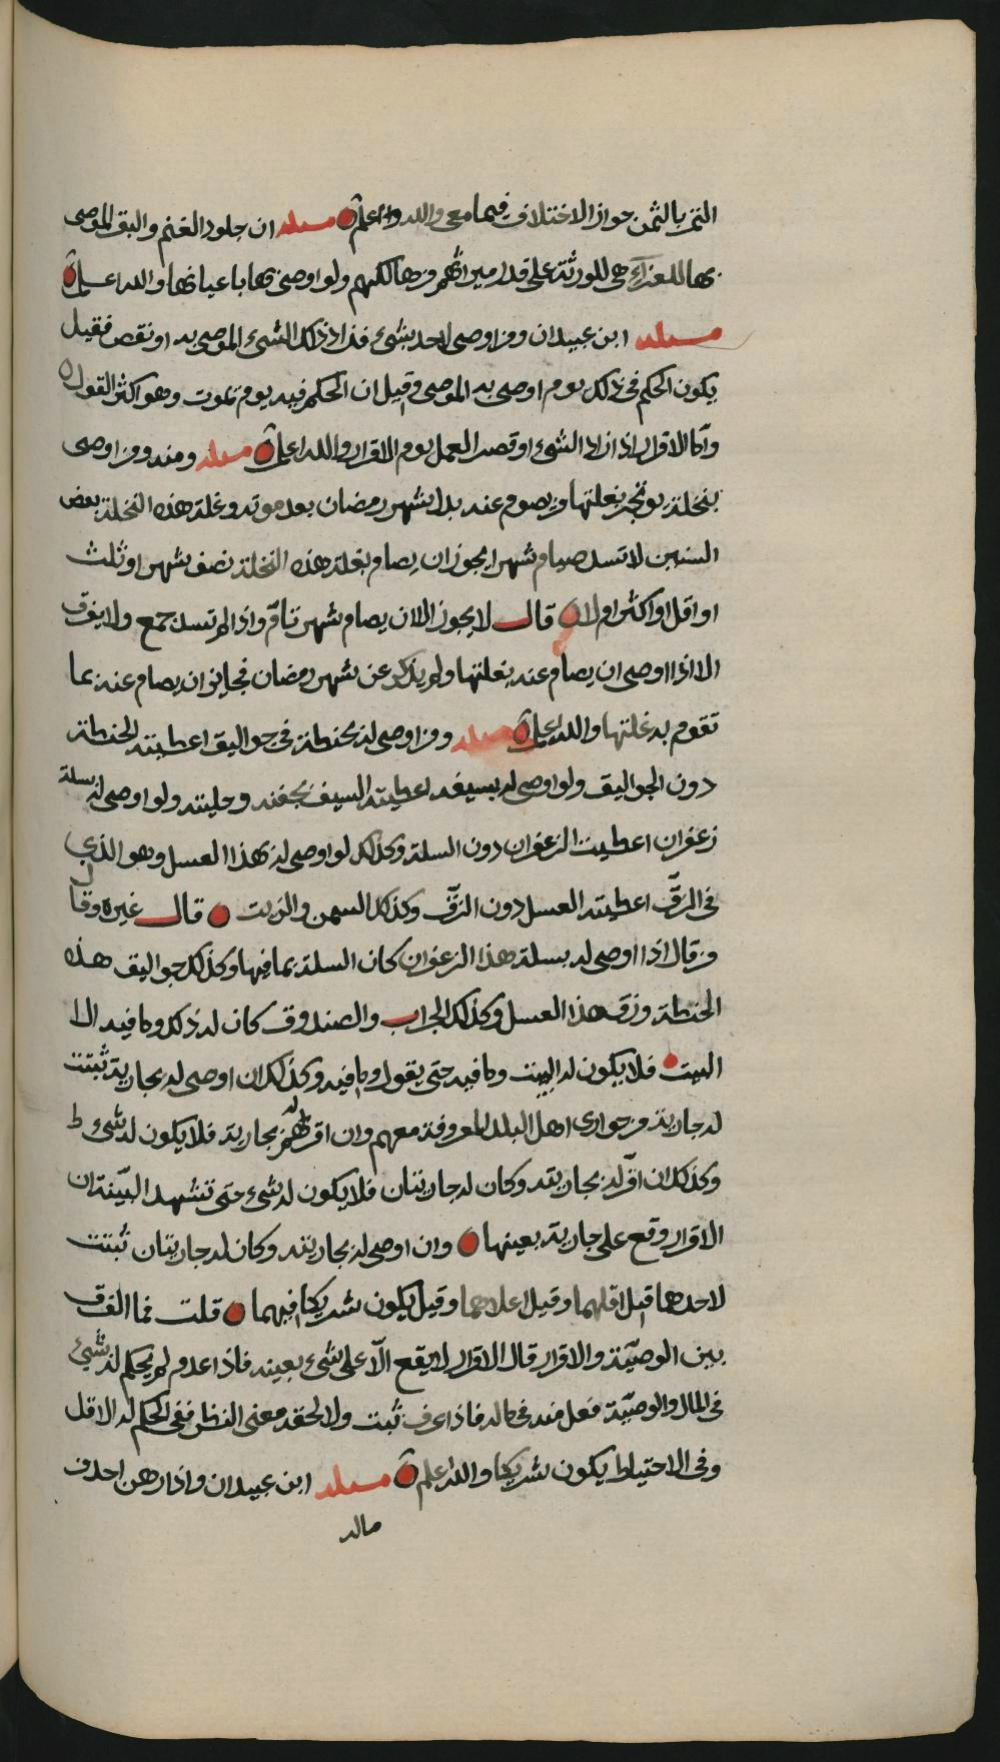 التمر بالثمن جواز الاختلاف فيما معي والله اعلم مسئلة ان جلود الغنم والبقر الموصى
بها للعزاء هي للورثة على قدر ميراثهم وهالكهم ولو اوصى بها باعيانها والله اعلم
مسئلة ابن عبيدان ومن اوصى لاحد بشيء فزاد ذلك الشيء الموصى به او نقص فقيل
يكون الحكم في ذلك يوم اوصى به الموصي وقيل ان الحكم فيه يوم يموت وهو اكثر القول
واما الاقرار اذا زاد الشيء او قصر العمل يوم الاقرار والله اعلم مسئلة ومنه ومن اوصى
بنخلة يوتجر بغلتها ويصوم عنه بدل شهر رمضان بعد موته وغلة هذه النخلة بعض
السنين لا تسد صيام شهر ايجوز ان يصام بغلة هذه النخلة نصف شهر او ثلث
او اقل او اكثر ام لا قال لا يجوز الا ان يصام شهر تام واذا لم تسد جمع ولا يفرق
الا اذا اوصى ان يصام عنه بغلتها ولم يذكر عن شهر رمضان فجايز ان يصام عنه بما
تقوم به غلتها والله اعلم مسئلة ومن اوصى له بحنطة في جواليق اعطيته الحنطة
دون الجواليق ولو اوصى له بسيف اعطيته السيف بجفنه وحليته ولو اوصى له بسلة
زعفران اعطيت الزعفران دون السلة وكذلك لو اوصى له بهذا العسل وهو الذي
في الزق اعطيته العسل دون الزق وكذلك السمن والزيت قال غيره وقال
من قال اذا اوصى له بسلة هذا الزعفران كان السلة بما فيها وكذلك جواليق هذه
الحنطة وزق هذا العسل وكذلك الجراب والصندوق كان له ذلك وما فيه الا
البيت فلا يكون له البيت وما فيه حتى يقول وما فيه وكذلك ان اوصى له بجارية ثبتت
له جارية من جواري اهل البلد المعروفة معهم وان اقر له بجارية فلا يكون له شيء
وكذلك ان اقر له بجاريته وكان له جاريتان فلا يكون له شيء حتى تشهد البينة ان
الاقرار وقع على جارية بعينها وان اوصى له بجاريته وكان له جاريتان ثبتت
لاحدهما قيل اقلهما وقيل اعلاهما وقيل يكون شريكا فيهما قلت فما الفرق
بين الوصية والاقرار قال الاقرار لا يقع الا على شيء بعينه فاذا عدم لم يحكم له بشيء
في المال والوصية فعل منه في ماله فاذا عرف ثبت ولا لحقه معنى النظر ففي الحكم له الاقل
وفي الاحتياط يكون شريكا والله اعلم مسئلة ابن عبيدان واذا رهن احد من
ماله